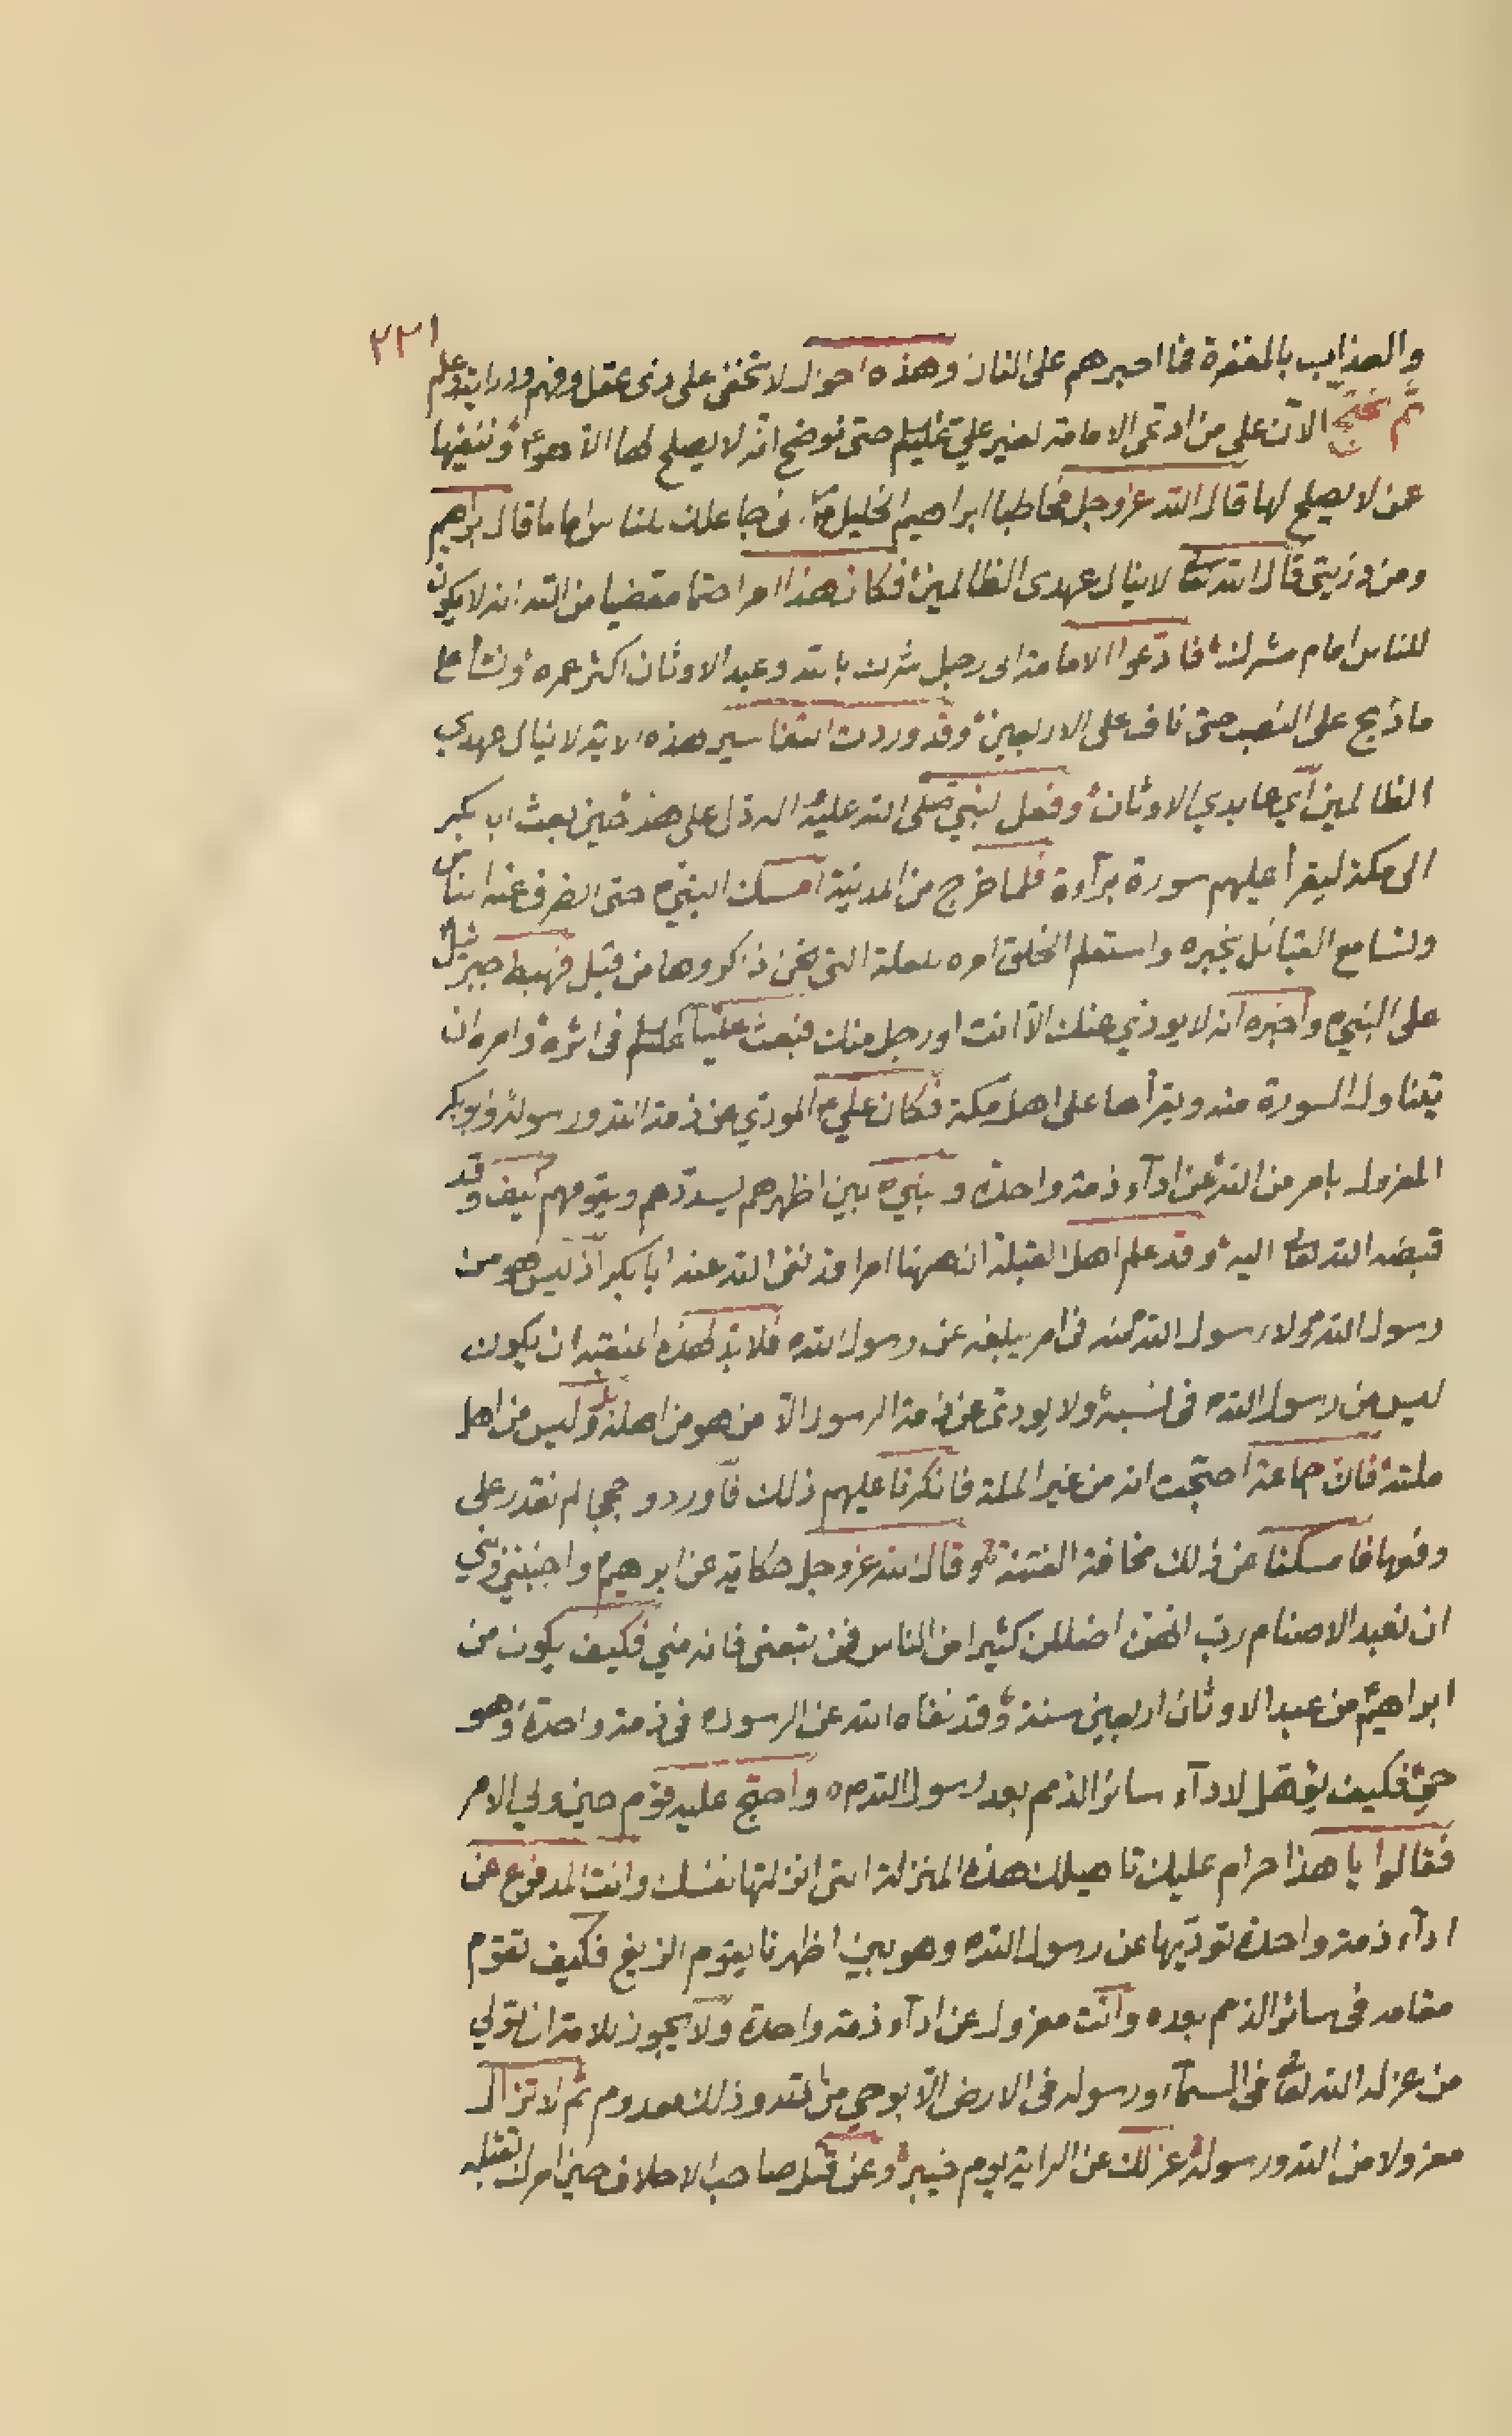 ٢٣١
والعذاب بالمغفرة فما اصبرهم على النار وهذه احوال لا تخفى على ذى عقل وفهم ودراية وعلم
ثم نحتج الآن على من ادعى الامامة لغير علي عليلسلم حتى نوضح انه لا يصلح لها الا هو ع م وننفيها
عمن لا يصلح لها قال الله عز وجل مخاطبا ابراهيم الخليل ع م انى جاعلك للناس اماما قال ابراهيم
ومن ذريتى قال الله تعا لا ينال عهدى الظالمين فكان هذا امرا حتما مقضيا من الله انه لا يكون
للناس امام مشرك فادعوا الامامة الى رجل شرك بالله وعبد الاوثان اكثر عمره ونشا على
ما ذبح على النصب حتى ناف على الاربعين وقد وردت التفاسير هذه الاية لا ينال عهدي
الظالمين اي عابدي الاوثان وفعل لنبي صلى الله عليه اله دل على هذ حين بعث ابا بكر
الى مكة ليقرأ عليهم سورة برآءة فلما خرج من المدينة امسك النبي م حتى انصرف عنه الناس
وتسامع القبائل بخبره واستعلم الخلق امره للعلة التى نحن ذاكروها من قبل فهبط جبرئيل
على النبي م واخبره انه لا يودي عنك الا انت او رجل منك فبعث عليا عليلسلم فى اثره وامره ان
يتناول السورة منه ويقرأها على اهل مكة فكان علي ع م المودي عن ذمة الله ورسوله وابوبكر
المعزول بامر من الله عن ادآء ذمة واحدة ونبي ه بين اظهرهم يسددهم ويقومهم كيف وقد
قبضه الله تعا اليه وقد علم اهل القبلة ان ههنا امرا قد نفى الله عنه ابا بكر اذ ليس هو من
رسول الله م ولا رسول الله منه فى امر يبلغه عن رسول الله ه فلا بد لهذه المنقبة ان يكون
ليس من رسول الله ه فى نسبه ولا يودى عن ذمة الرسول الا من هو من اهله بل وليس من اهل
ملته فان جماعة احتجت انه من غير الملة فانكرنا عليهم ذلك فاوردو حججا لم نقدر على
دفعها فامسكنا عن ذلك مخافة الفتنة وقال الله عز وجل حكاية عن ابرهيم م واجنبنى وبني
ان نعبد الاصنام رب انهن اضللن كثيرا من الناس فمن تبعنى فانه مني فكيف يكون من
ابراهيم من عبد الاوثان اربعين سنة وقد نفاه الله عن الرسول ه فى ذمة واحدة وهو
حي فكيف يؤهل لادآء سائر الذمم بعد رسول الله م ه واحتج عليه قوم حين ولي الامر
فقالوا يا هذا حرام عليك تاهيلك هذه المنزلة التى انزلتها نفسك وانت المدفوع عن
ادآء ذمة واحدة توديها عن رسول الله ه وهو بين اظهرنا يقوم الزيغ فكيف تقوم
مقامه فى سائر الذمم بعده وانت معزول عن ادآء ذمة واحدة ولا يجوز للامة ان تولي
من عزله الله تعا فى السمآء ورسوله فى الارض الا بوحي من الله وذلك معدوم ثم لا تزال
معزولا من الله ورسوله عزلك عن الراية يوم خيبر وعن قتل صاحب الاحلاف حين امرك بقتله